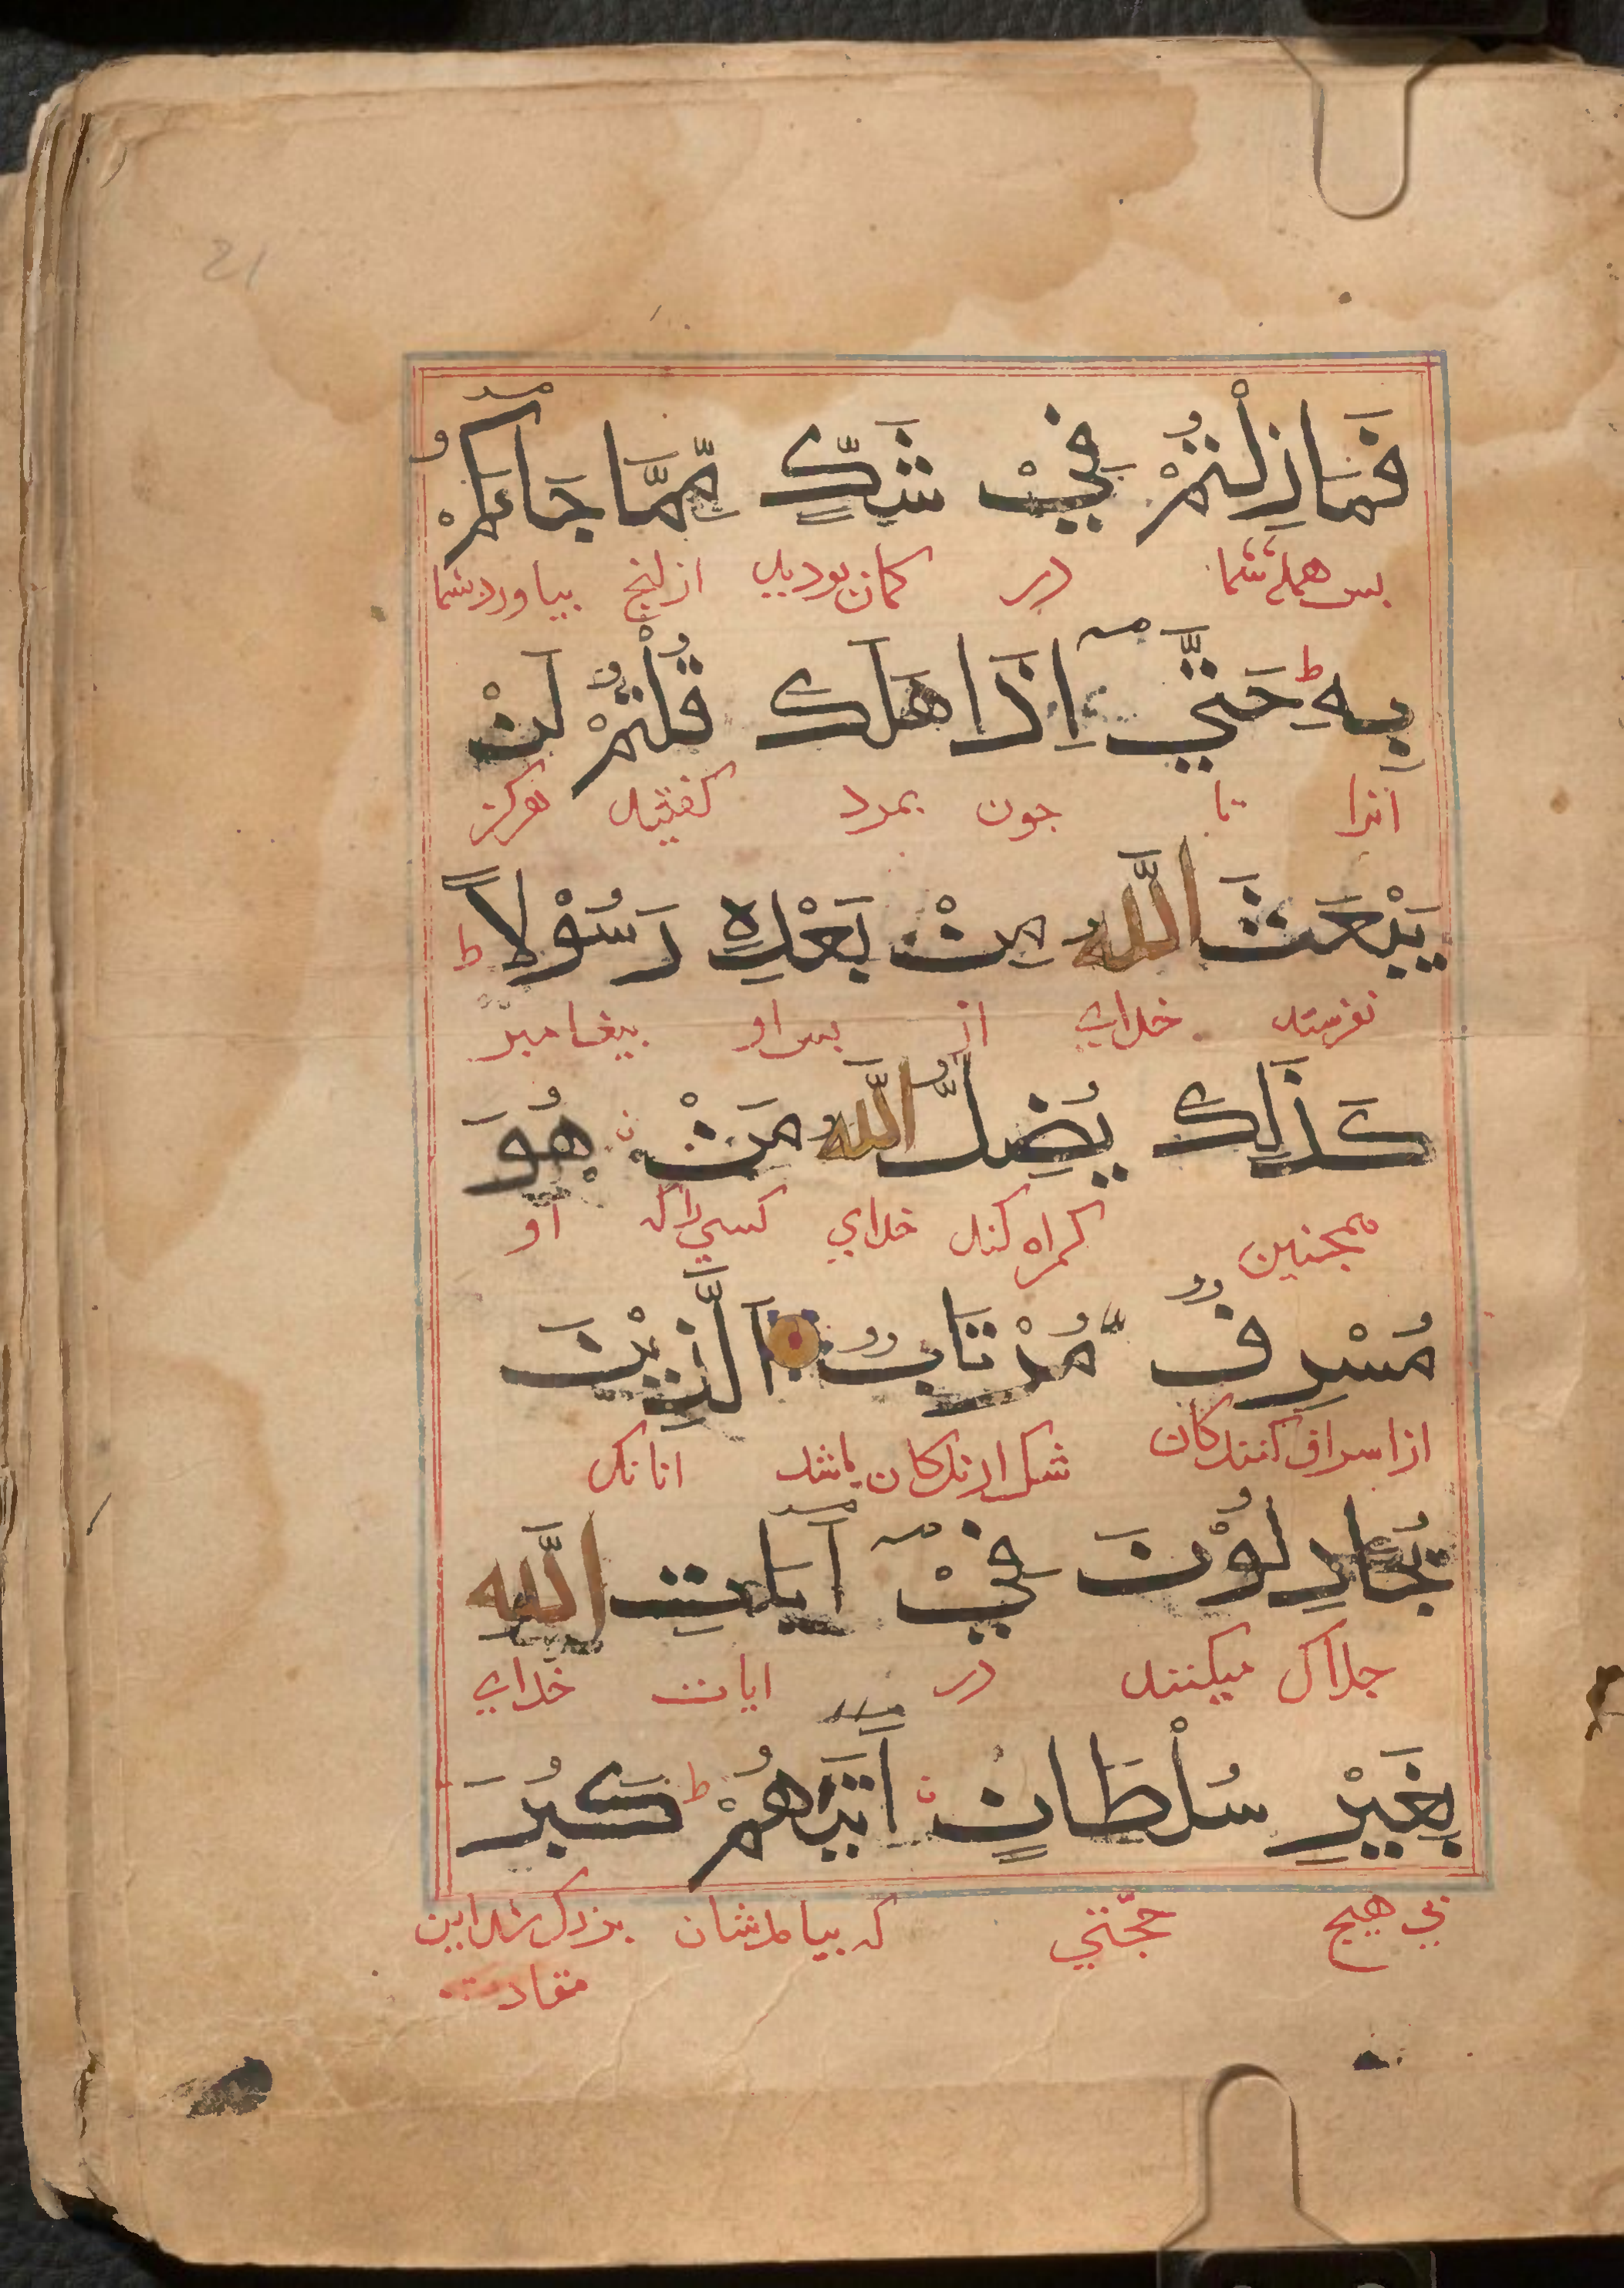 فَمَازِلْتُمْ فِيْ شَكٍّ مِّمَّا جَآءَكُمْ
بس همیشه شما در کمان بودید از انج بیاورد شما
بِهِ ط حَتَّيٓ اِذَا هَلَكَ قُلْتُمْ لَنْ
آنرا تا جون بمرد کفتید هرکز
يَبْعَثَ اللّٰهُ مِنْ بَعْدِهٖ رَسُوْلًا ط
نفرستد خدای از بس او بیغامبر
كَذٰلِكَ يُضِلُّ اللّٰهُ مَنْ هُوَ
همجنین کمراه کند خدای کسی را که او
مُسْرِفٌ مُرْتَابٌ الَّذِيْنَ
از اسراف کنندکان شک ارندکان باشد انانک
يُجَادِلُوْنَ فِيْٓ آيَاتِ اللّٰهِ
جدال میکنند در ایات خدای
بِغَيْرِ سُلْطَانٍ اَتٰيهُمْ ط كَبُرَ
بی هیج حجّتی که بیامدشان بزرک شد این